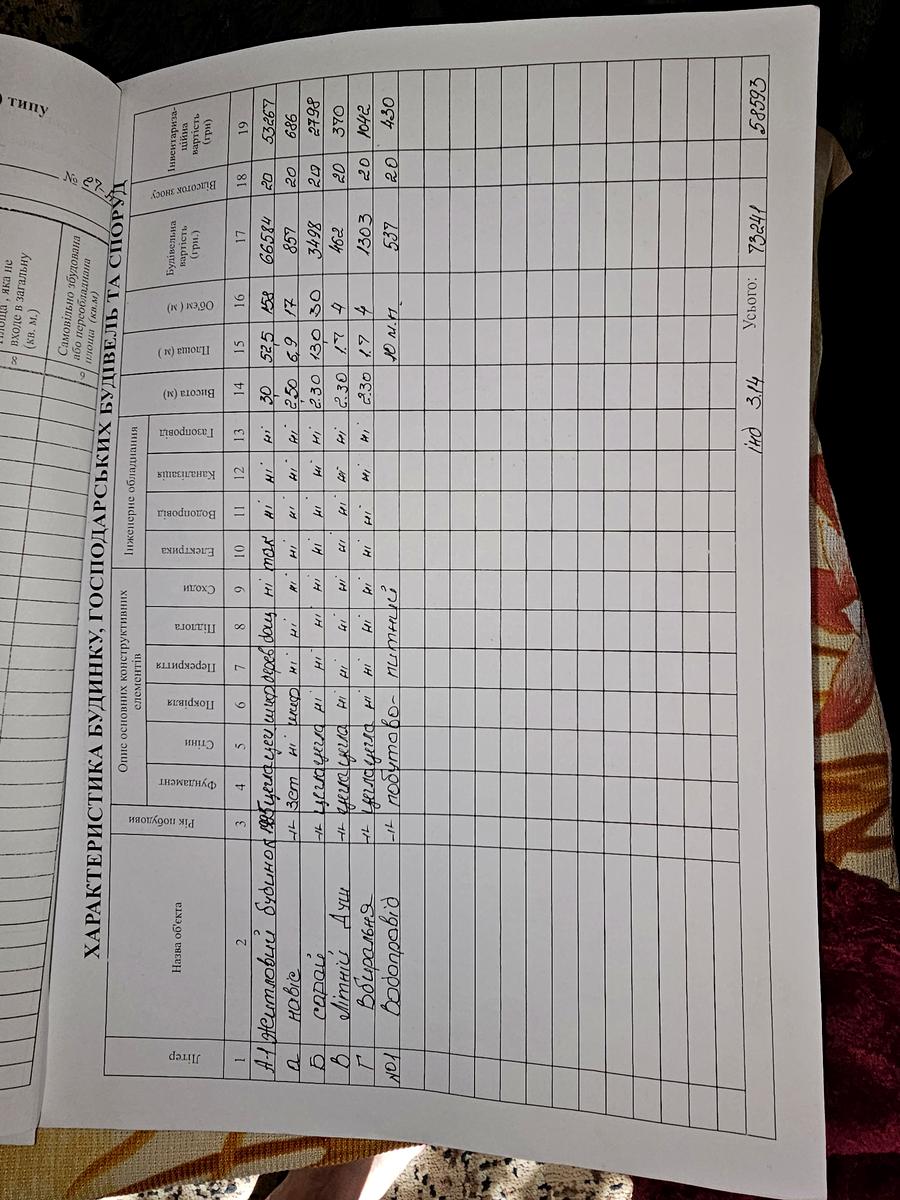 ) типу
№ 27
площа , яка не
входе в загальну
(кв. м.)
8
Самовільно збудована
або переобладнана
площа (кв.м)
9
ХАРАКТЕРИСТИКА БУДИНКУ, ГОСПОДАРСЬКИХ БУДІВЕЛЬ ТА СПОРУД
Літер Назва об'єкта Рік побудови Опис основних конструктивних елементів Інженерне обладнання Висота (м) Площа (м ) Об'єм ( м ) Будівельна вартість (грн.) Відсоток зносу Інвентариза-ційна вартість (грн)
Фундамент Стіни Покрівля Перекриття Підлога Сходи Електрика Водопровід Каналізація Газопровід
1 2 3 4 5 6 7 8 9 10 11 12 13 14 15 16 17 18 19
А-1 Житловий будинок цегла цегл шифр дерев дощ ні так ні ні ні 30 52,5 158 66584 20 53267
а навіс -"- зст ні шифр ні ні ні ні ні ні ні 2.50 6,9 17 857 20 686
Б сарай -"- цегла цегла ні ні ні ні ні ні ні ні 2.30 130 30 3498 20 2798
В Літній Душ -"- цегла цегла ні ні ні ні ні ні ні ні 2.30 1.7 4 462 20 370
Г Вбиральня -"- цегла цегла ні ні ні ні ні ні ні ні 2.30 1.7 4 1303 20 1042
№1 Водопровід -"- побутово- питний 10 м.п. 537 20 430
інд 3,14 Усього: 73241 58593